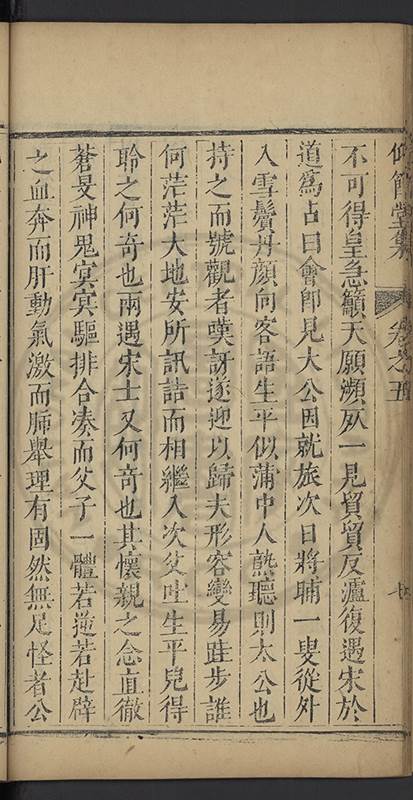 仰節堂集 卷之五
不可得皇急籲天願瀕死一見貿貿反瀘復遇宋於
道爲占曰會卽見大公因就旅次日將晡一叟從外
入雪鬢丹顏向客語生平似蒲中人熟聽則太公也
持之而號觀者嘆訝遂迎以歸夫形容變易跬步誰
何茫茫大地安所訊詰而相繼入次父吐生平兒得
聆之何奇也兩遇宋士又何奇也其懷親之念直徹
蒼旻神鬼㝠㝠驅排合湊而父子一體若迎若赴辟
之血奔而肝動氣激而肺舉理有固然無足怪者公